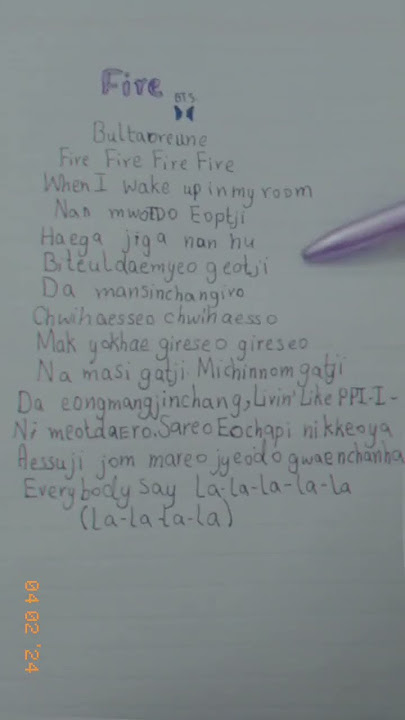 Fire
BTS
Bultaoreune
Fire Fire Fire Fire
When I wake up in my room
Nan mwoTDO Eoptji
Haega jiga nan hu
Biteuldaemyeo geotji
Da mansinchangiro
Chwihaesseo chwihaesso
Mak yokhae gireseo gireseo
Na masi gatji Michinnom gatji
Da eongmangjinchang, Livin' Like PPI-I-
Ni meotdaero. Sareo Eochapi nikkeoya
Aessuji jom mareo jyeodo gwaenchanha
Everybody Say La-La-la-la-la
(La-La-la-la)
04 02 '24